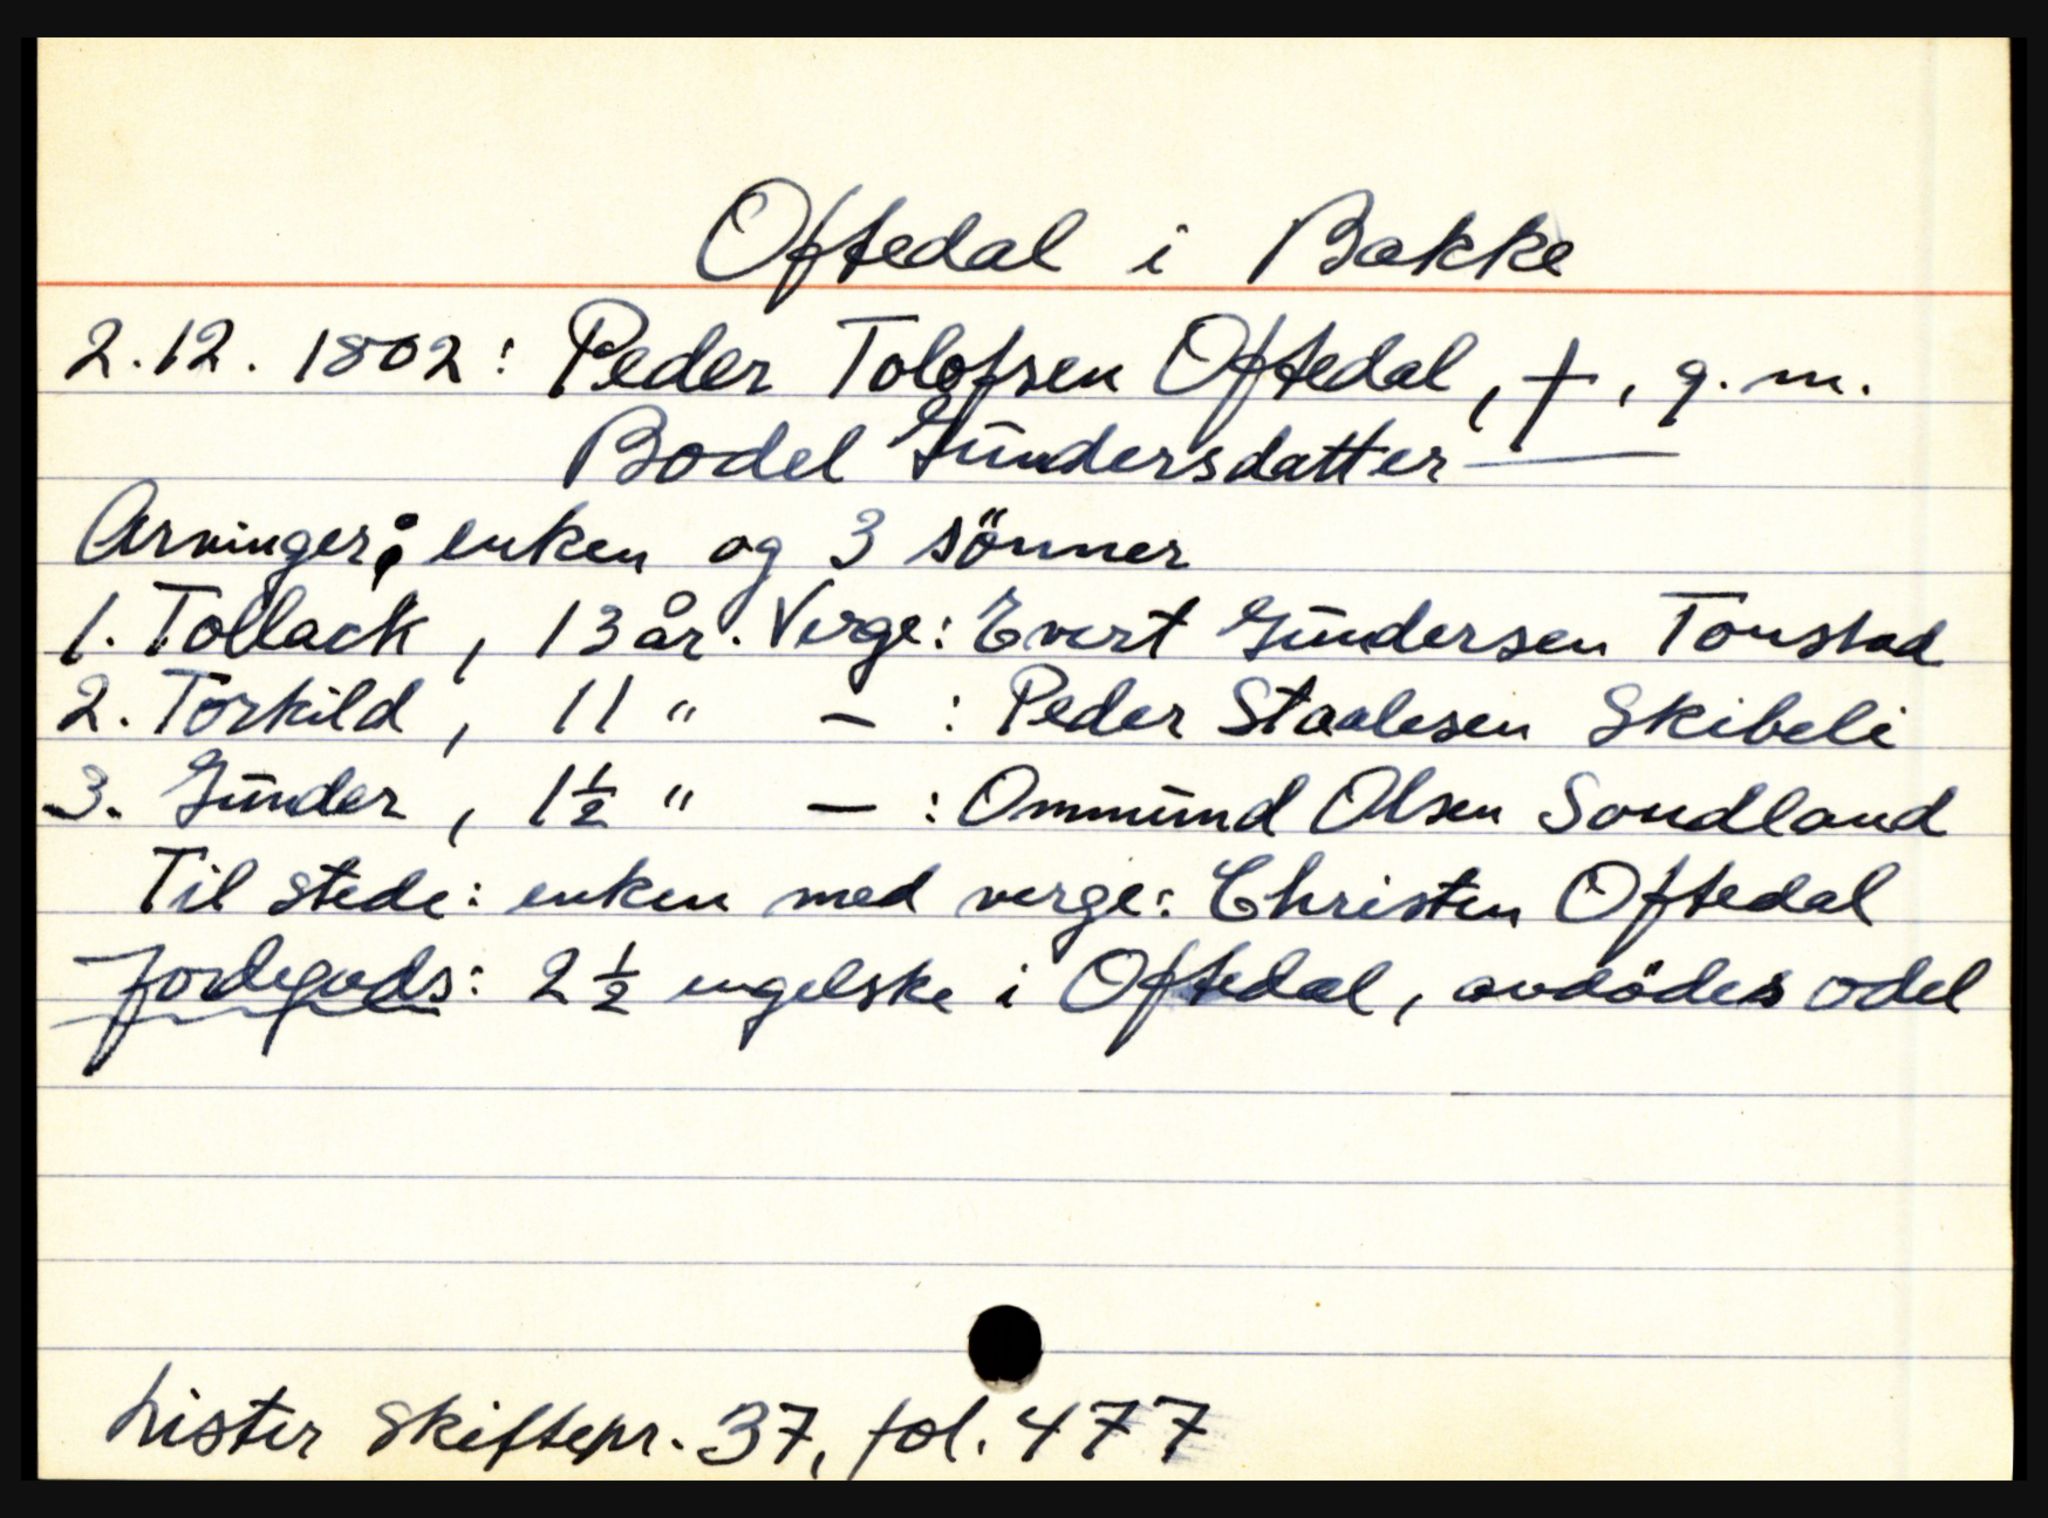 Oftedal i Bakke
2.12. 1802: Peder Tolofsen Oftedal, †, g. m.
Bodel Gūndersdatter —
Arvinger; enken og 3 sönner
1. Tollack, 13 år. Verge: Evert Gūndersen Tonstad
2. Torkild, 11 " — : Peder Staalesen Skibeli
3. Gūnder, 1½ " — : Ommūnd Olsen Sondland
Til stede: enken med verge: Christen Oftedal
Jordegods: 2½ engelske i Oftedal, avdödes odel
Lister skiftepr. 37, fol. 477